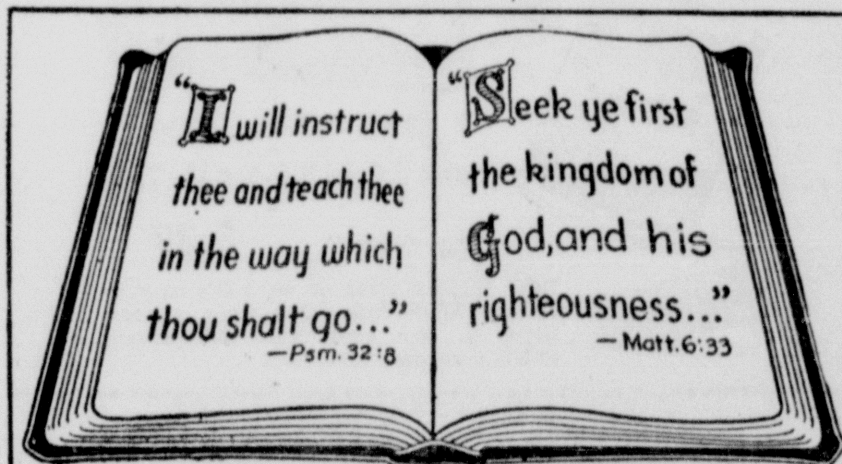 “I will instruct
thee and teach thee
in the way which
thou shalt go...”
—Psm. 32:8
“Seek ye first
the kingdom of
God, and his
righteousness...”
—Matt. 6:33